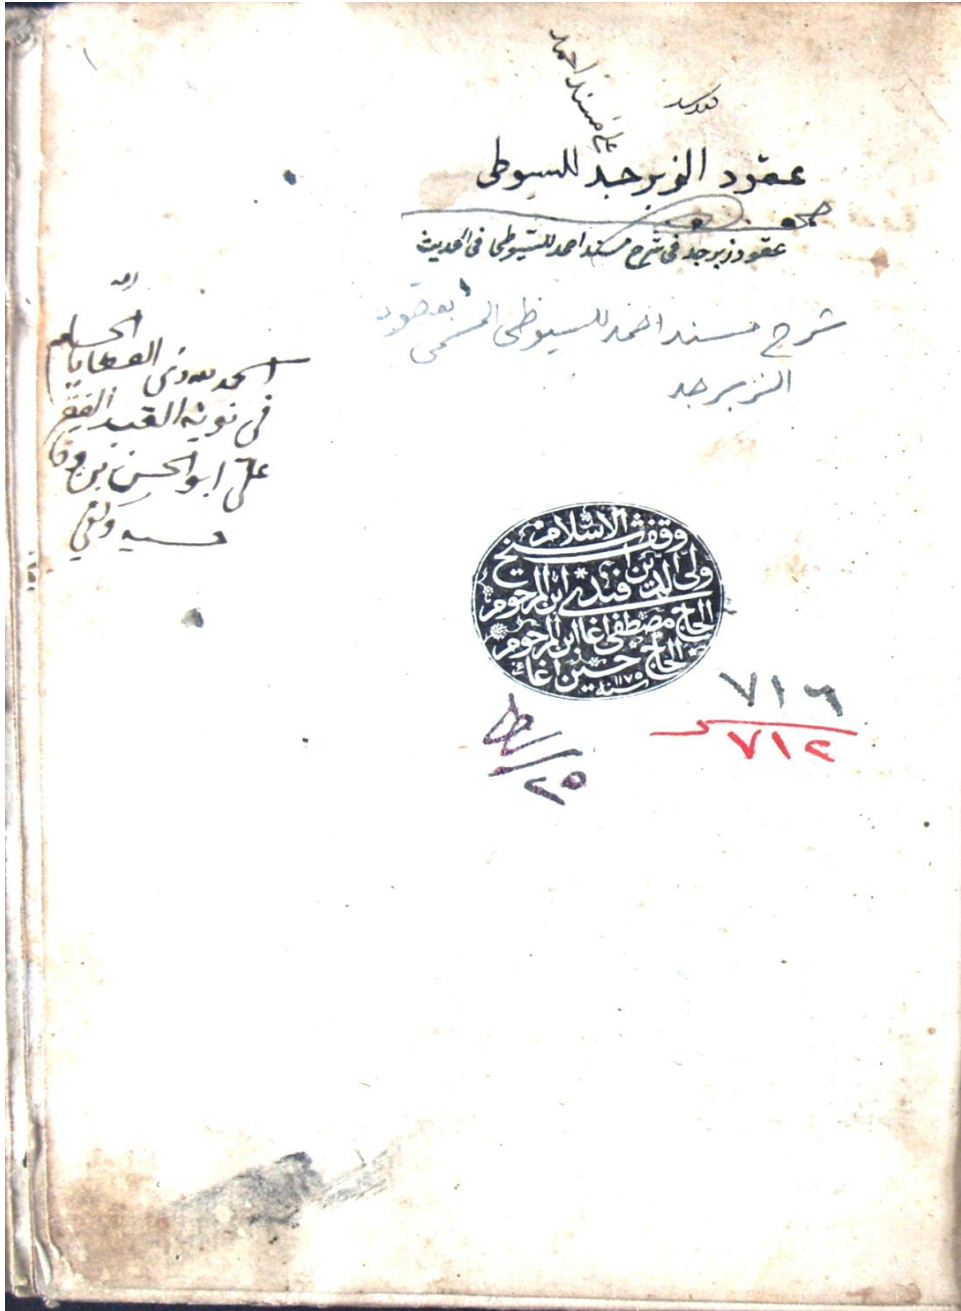 على مسند احمد
عقود الزبرجد للسيوطى
عقود زبرجد فى شرح مسند احمد للسيوطى فى الحديث
شرح مسند احمد للسيوطى المسمى بعقود
الزبرجد
الحمد لله ذى العطايا
فى نوبة العبد الفقير
على ابو الحسن بن وفا
وقف شيخ الاسلام
ولى الدين افندى ابن المرحوم
الحاج مصطفى اغا ابن المرحوم
الحاج حسين اغا
سنة ١١٧٥
٧١٦
٧١٤
٢٥